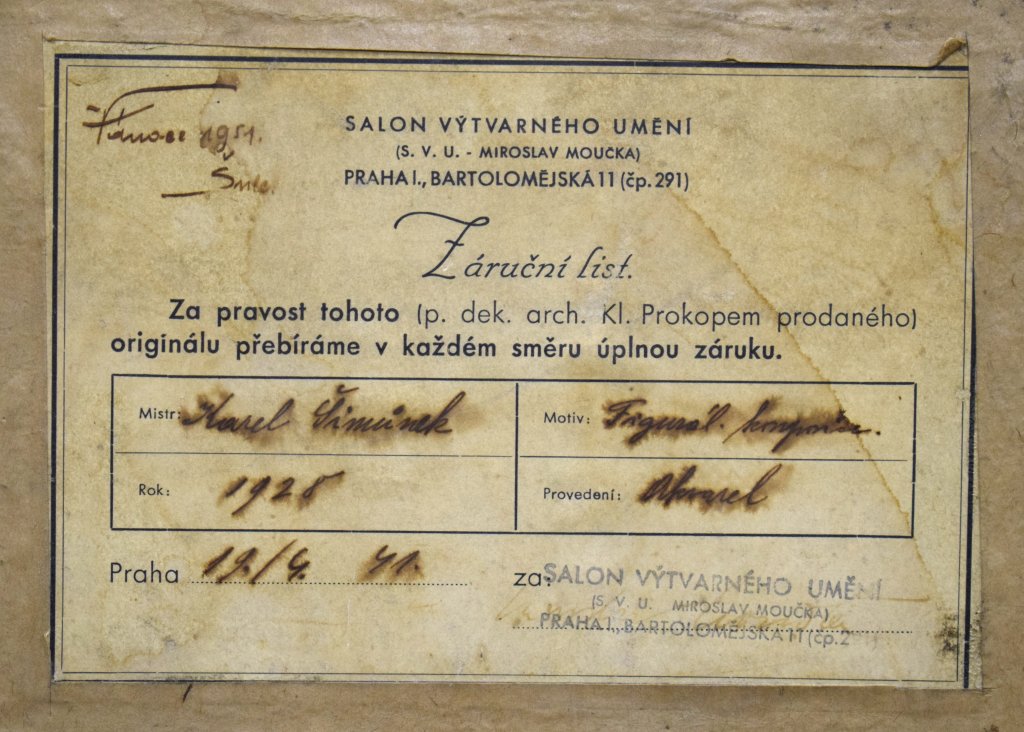 Vánoce 1951.
SALON VÝTVARNÉHO UMĚNÍ
(S. V. U. - MIROSLAV MOUČKA)
PRAHA I., BARTOLOMĚJSKÁ 11 (čp. 291)
Záruční list.
Za pravost tohoto (p. dek. arch. Kl. Prokopem prodaného)
originálu přebíráme v každém směru úplnou záruku.
Mistr: Karel Šimůnek
Motiv: Figurál.
Rok: 1928
Provedení: Akvarel
Praha 19./4. 41.
za: SALON VÝTVARNÉHO UMĚNÍ
(S. V. U. MIROSLAV MOUČKA)
PRAHA I., BARTOLOMĚJSKÁ 11 (čp. 2